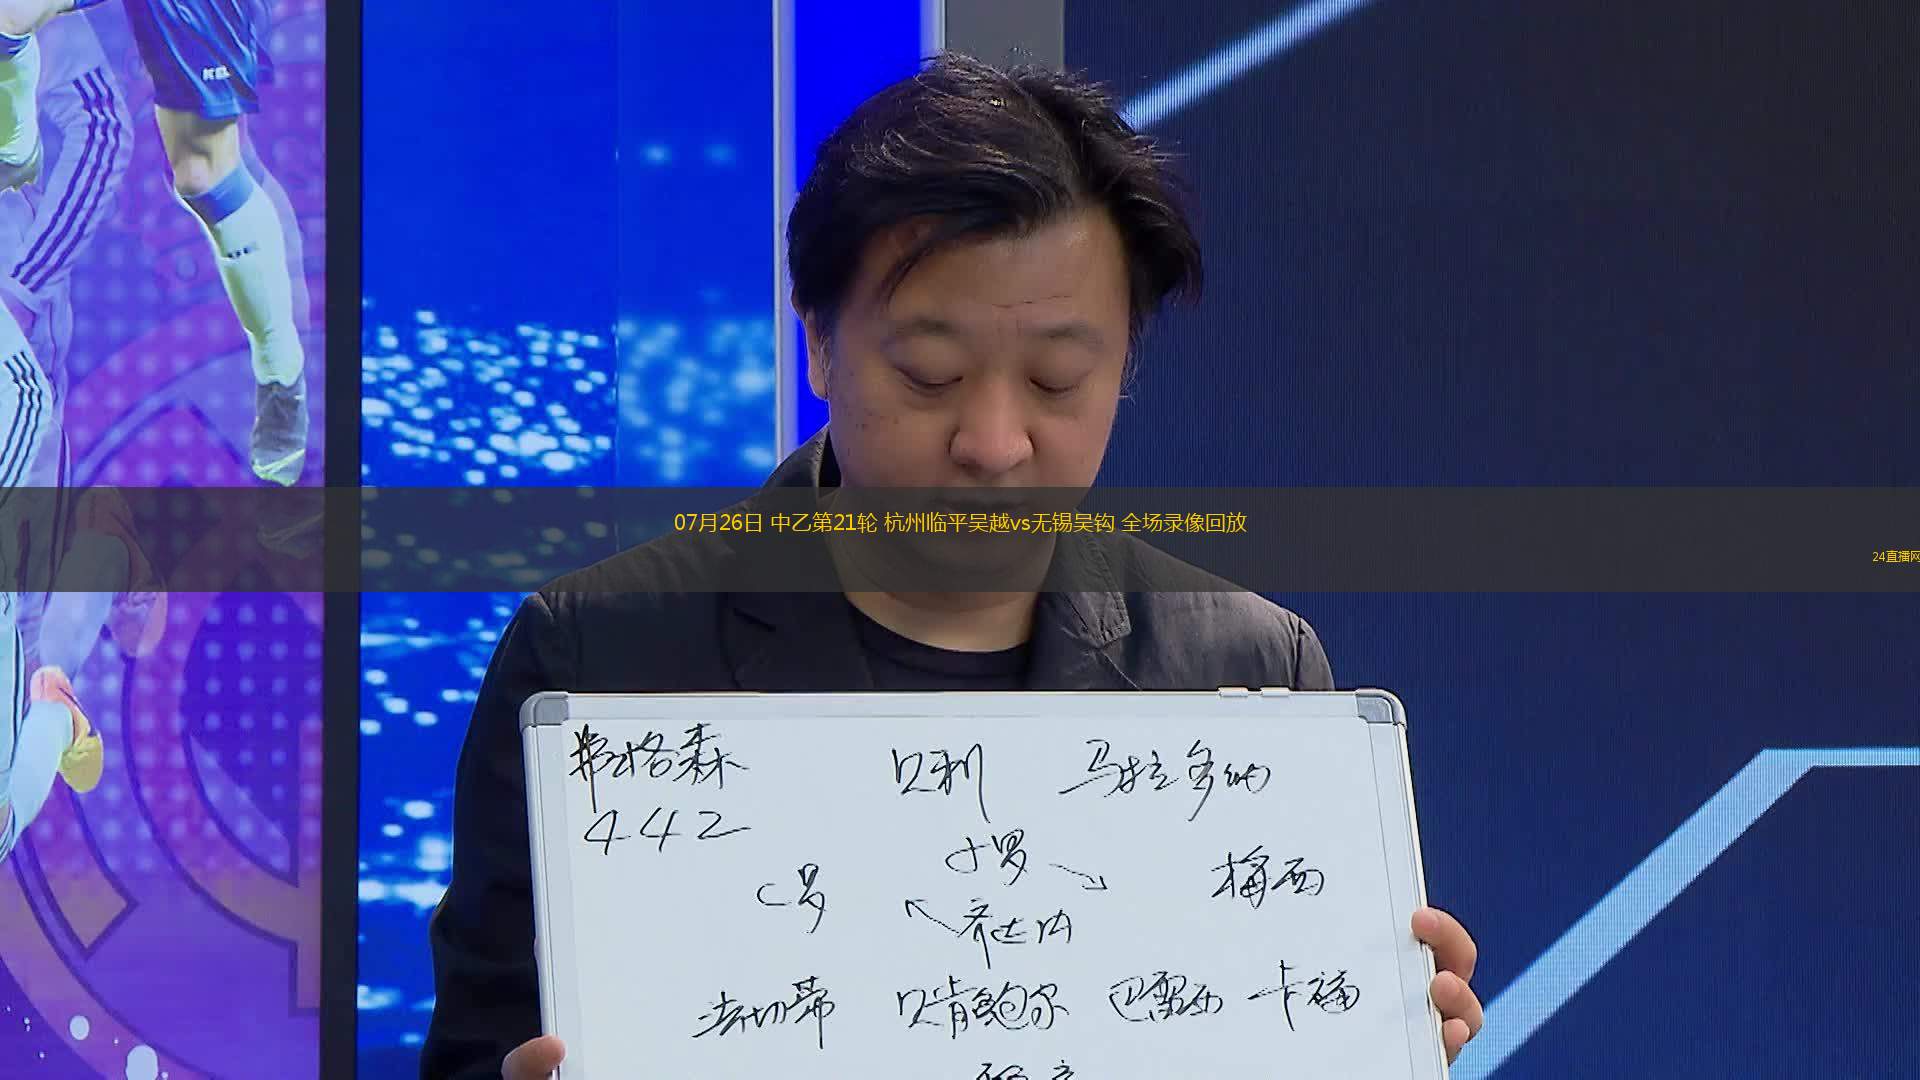 07月26日 中乙第21轮 杭州临平吴越vs无锡吴钩 全场录像回放
24直播网
弗格森 贝利 马拉多纳
442
小罗
C罗 梅西
齐达内
法切蒂 贝肯鲍尔 巴雷西 卡福